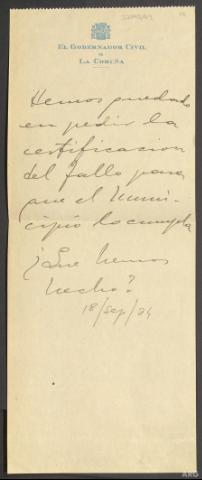 EL GOBERNADOR CIVIL
DE
LA CORUÑA
Hemos quedado
en pedir la
certificacion
del fallo para
que el Muni-
cipio lo cumpla
¿Que hemos
hecho?
18/sep/34
ARG